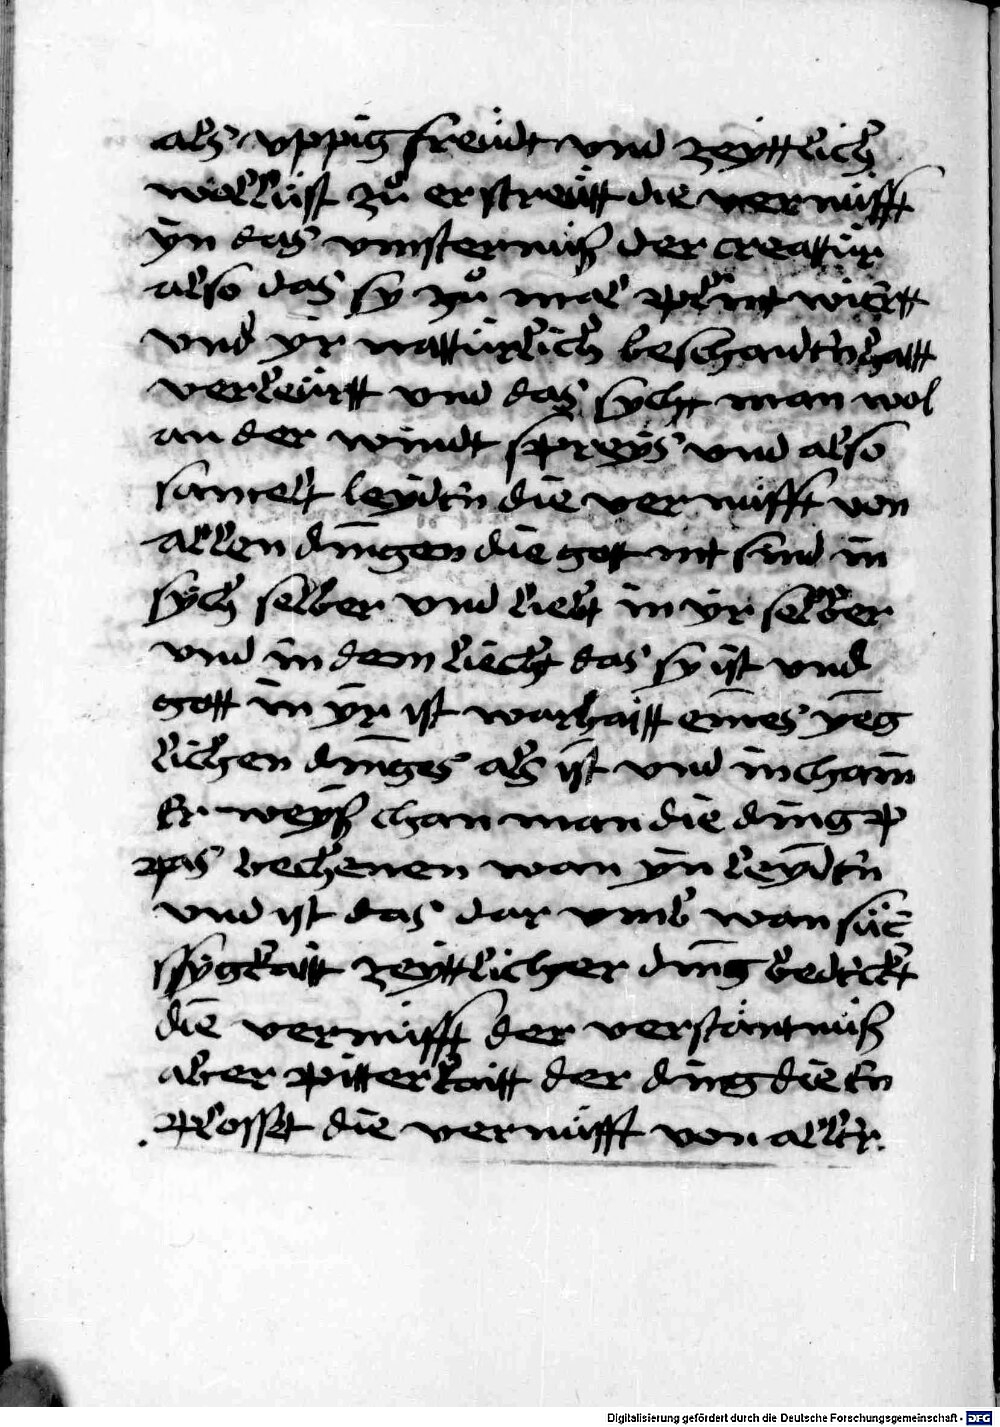 als uppig freüdt und zeyttlich
wollüst zů erstreütt die vernüfft
yn das vinsternüß der creattür
also das sy zů mal plint wirtt
und yr nattürlich beschaidenhaitt
verleürtt und das sycht man wol
an der windt spreys und also
samelt leyden die vernüfft von
allen dingen die gott nit sind in
sych selber und liebt in yr selber
und in dem liecht das sy ist und
gott in yr ist warhaitt eines yeg
lichen dinges als ist und in chain
er weyß chan man die ding p
pas bechenen wan yn leyden
und ist das dar umb wan süe
ssygkaitt zeyttlicher ding bedeckt
die vernüfft der verstäntnüß
aber pitterkaitt der ding die en
plosset die vernüfft von aller
Digitalisierung gefördert durch die Deutsche Forschungsgemeinschaft - DFG